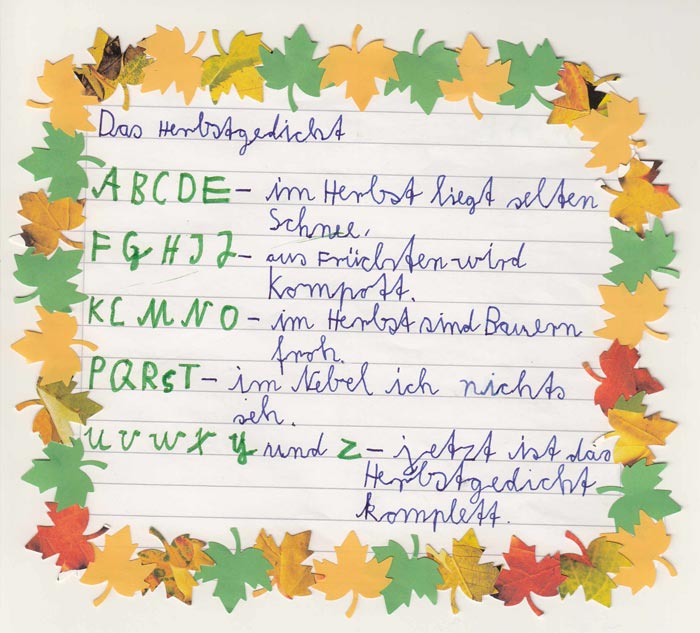 Das Herbstgedicht
ABCDE- im Herbst liegt selten
Schnee.
FGHIJ- aus Früchten wird
Kompott.
KLMNO- im Herbst sind Bauern
froh.
PQRST- im Nebel ich nichts
seh.
UVWXY und Z- jetzt ist das
Herbstgedicht
komplett.